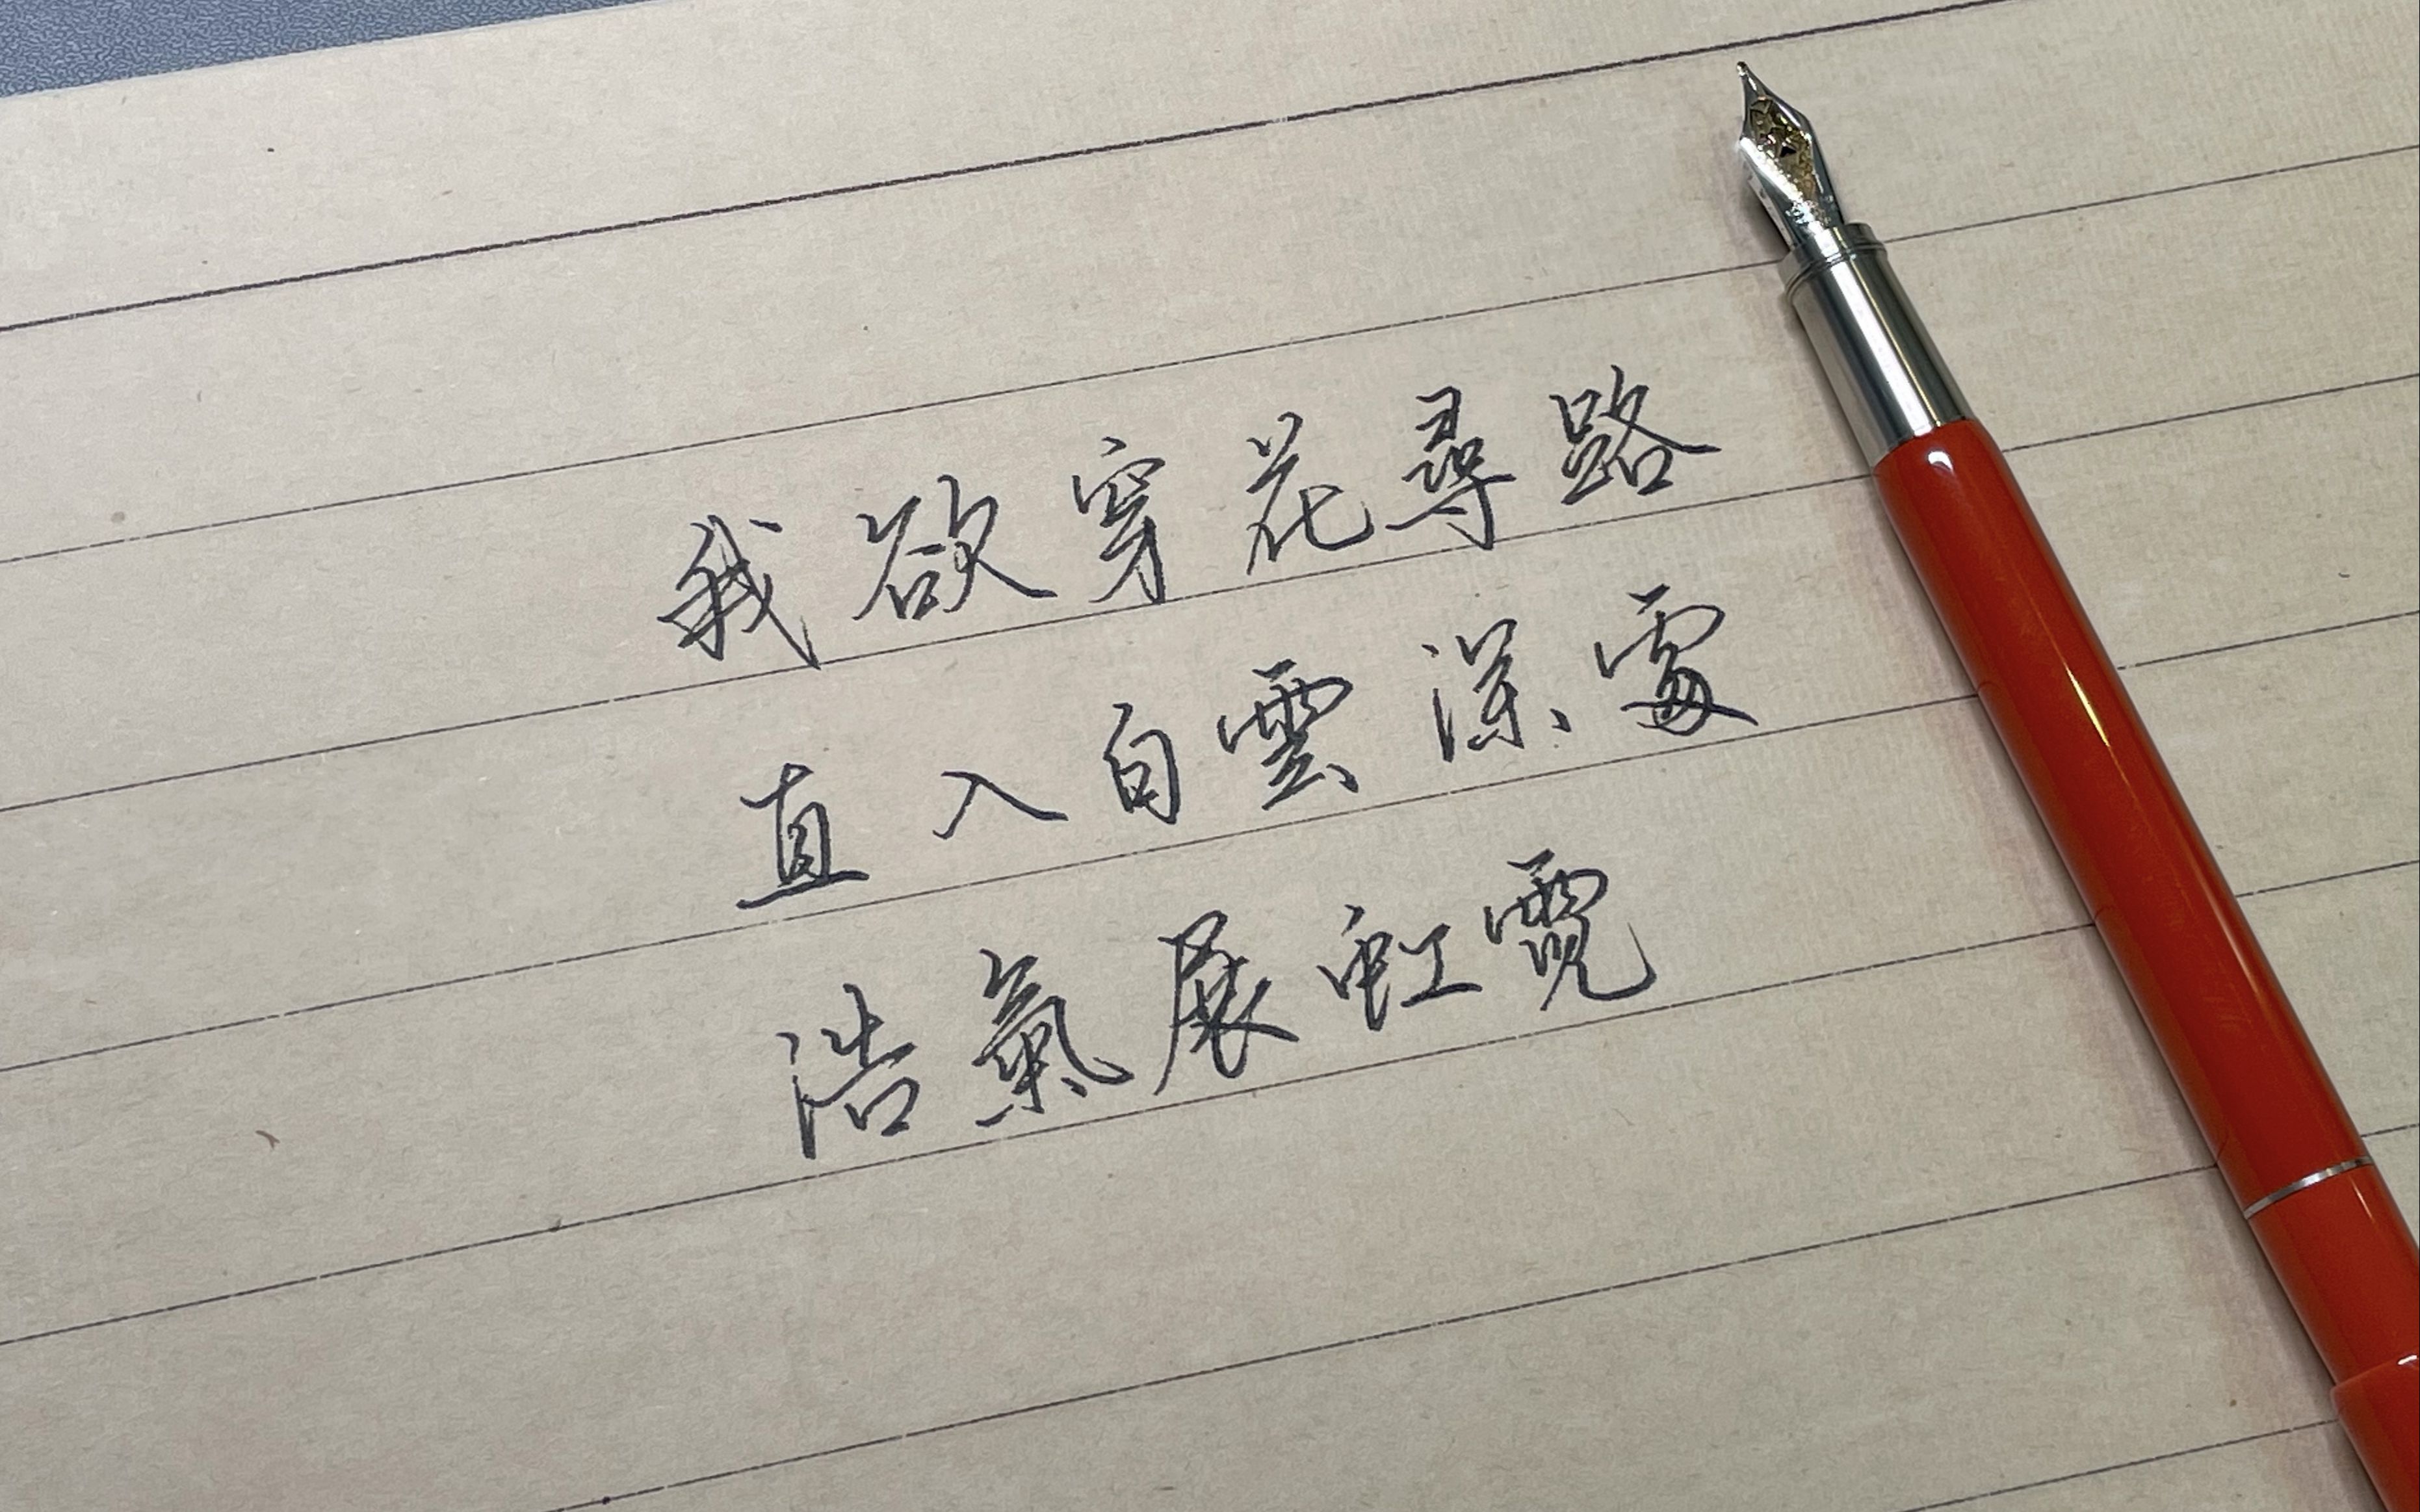 我欲穿花尋路
直入白雲深處
浩氣展虹霓